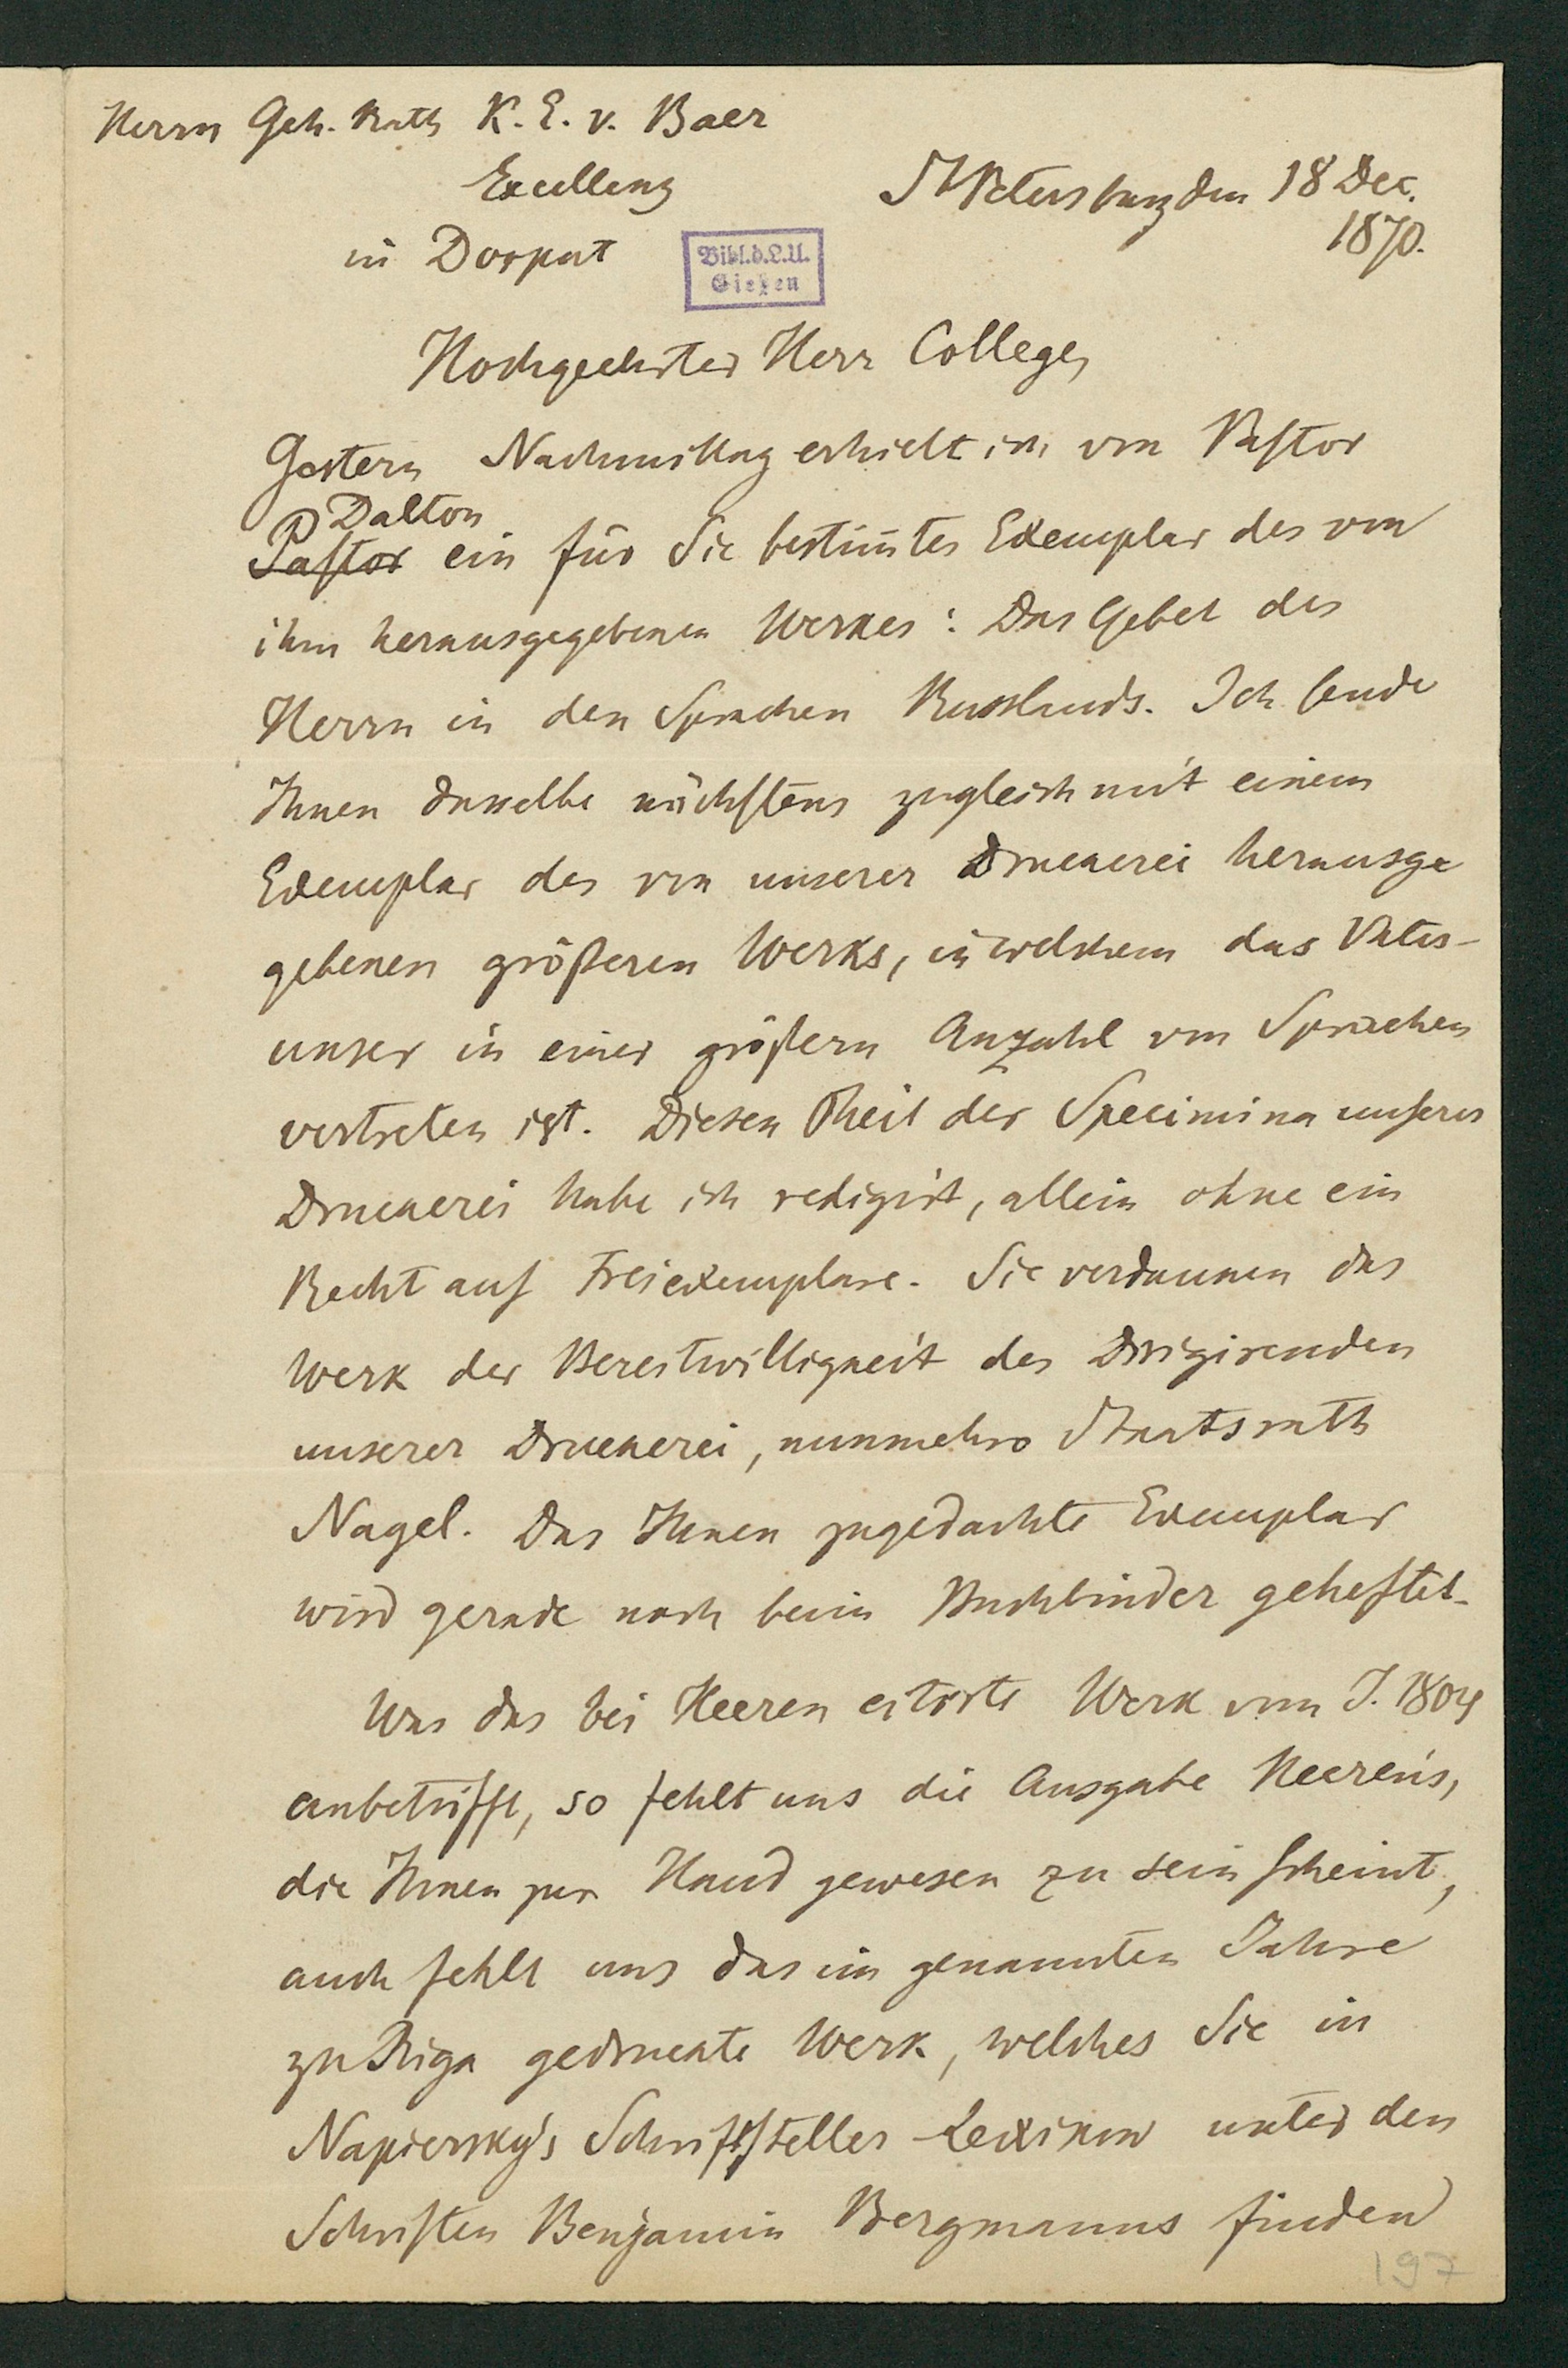 Herrn Geh. Rath K. E. v. Baer
Excellenz
in Dorpat
St Petersburg den 18 Dec.
1870.
Bibl.d.L.U.
Gießen
Hochgeehrter Herr College,
Gestern Nachmittag erhielt ich von Pastor
Dalton
Pastor ein für Sie bestim̅tes Exemplar des von
ihm herausgegebenen Werkes: Das Gebet des
Herrn in den Sprachen Russlands. Ich sende
Ihnen dasselbe nächstens zugleich mit einem
Exemplar des von unserer Druckerei herausge
gebenen größeren Werks, in welchem das Vater-
unser in einer größern Anzahl von Sprachen
vertreten ist. Diesen Theil der Specimina unserer
Druckerei habe ich redigirt, allein ohne ein
Recht auf Freiexemplare. Sie verdanken das
Werk der Bereitwilligkeit des Dirigirenden
unserer Druckerei, nunmehro Staatsrath
Nagel. Das Ihnen zugedachte Exemplar
wird gerade noch beim Buchbinder geheftet.
Was das bei Heeren citirte Werk vom J. 1804
anbetrifft, so fehlt uns die Ausgabe Heeren's,
die Ihnen zur Hand gewesen zu sein scheint,
auch fehlt uns das im genannten Jahre
zu Riga gedruckte Werk, welches Sie in
Napiersky's Schriftsteller-Lexikon unter den
Schriften Benjamin Bergmanns finden
197